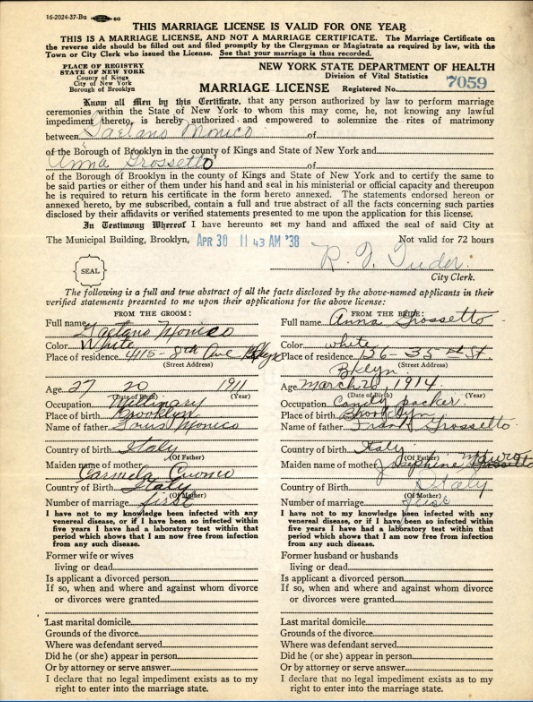 16-2024-37-Bu
THIS MARRIAGE LICENSE IS VALID FOR ONE YEAR
THIS IS A MARRIAGE LICENSE, AND NOT A MARRIAGE CERTIFICATE. The Marriage Certificate on
the reverse side should be filled out and filed promptly by the Clergyman or Magistrate as required by law, with the
Town or City Clerk who issued the License. See that your marriage is thus recorded.
PLACE OF REGISTRY
STATE OF NEW YORK
County of Kings
City of New York
Borough of Brooklyn
NEW YORK STATE DEPARTMENT OF HEALTH
Division of Vital Statistics
MARRIAGE LICENSE Registered No. 7059
Know all Men by this Certificate, that any person authorized by law to perform marriage
ceremonies within the State of New York to whom this may come, he, not knowing any lawful
impediment thereto, is hereby authorized and empowered to solemnize the rites of matrimony
between Gaetano Monico of
of the Borough of Brooklyn in the county of Kings and State of New York and
Anna Grossetto of
of the Borough of Brooklyn in the county of Kings and State of New York and to certify the same to
be said parties or either of them under his hand and seal in his ministerial or official capacity and thereupon
he is required to return his certificate in the form hereto annexed. The statements endorsed hereon or
annexed hereto, by me subscribed, contain a full and true abstract of all the facts concerning such parties
disclosed by their affidavits or verified statements presented to me upon the application for this license.
In Testimony Whereof I have hereunto set my hand and affixed the seal of said City at
The Municipal Building, Brooklyn, APR 30 11 43 AM '38 Not valid for 72 hours
SEAL
City Clerk.
The following is a full and true abstract of all the facts disclosed by the above-named applicants in their
verified statements presented to me upon their applications for the above license:
FROM THE GROOM:
Full name Gaetano Monico
Color White
Place of residence 4115-8th Ave Bklyn
(Street Address)
Age 27 20 1911
(Date of Birth) (Year)
Occupation
Place of birth Brooklyn
Name of father Louis Monico
Country of birth Italy
(Of Father)
Maiden name of mother
Carmela Cuonco
Country of Birth Italy
(Of Mother)
Number of marriage first
I have not to my knowledge been infected with any
venereal disease, or if I have been so infected within
five years I have had a laboratory test within that
period which shows that I am now free from infection
from any such disease.
Former wife or wives
living or dead
Is applicant a divorced person
If so, when and where and against whom divorce
or divorces were granted
Last marital domicile
Grounds of the divorce
Where was defendant served
Did he (or she) appear in person
Or by attorney or serve answer
I declare that no legal impediment exists as to my
right to enter into the marriage state.
FROM THE BRIDE:
Full name Anna Grossetto
Color white
Place of residence 56-35th St.
(Street Address)
Bklyn
Age March 20 1914
(Date of Birth) (Year)
Occupation Candy packer
Place of birth Brooklyn
Name of father Frank Grossetto
Country of birth Italy
(Of Father)
Maiden name of mother Josephine
Country of Birth Italy
(Of Mother)
Number of marriage first
I have not to my knowledge been infected with any
venereal disease, or if I have been so infected within
five years I have had a laboratory test within that
period which shows that I am now free from infection
from any such disease.
Former husband or husbands
living or dead
Is applicant a divorced person
If so, when and where and against whom divorce
or divorces were granted
Last marital domicile
Grounds of the divorce
Where was defendant served
Did he (or she) appear in person
Or by attorney or serve answer
I declare that no legal impediment exists as to my
right to enter into the marriage state.